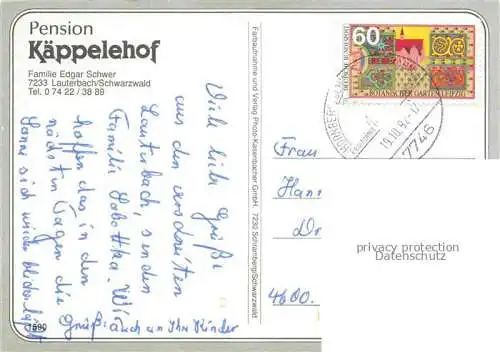 Pension
Käppelehof
Familie Edgar Schwer
7233 Lauterbach/Schwarzwald
Tel. 0 74 22 / 38 89
Viele liebe Grüße
aus dem
Lauterbach, senden
Familie Sobottka. Wir
hoffen das in den
nächsten Tagen die
Sonne sich wieder
Grüße auch an Ihre Kinder
1590
Farbaufnahme und Verlag Photo-Kasenbacher GmbH, 7230 Schramberg/Schwarzwald
60
DEUTSCHE BUNDESPOST
BOTANISCHER GARTEN LEIPZIG
19.10.92-17
7746
Frau
Hann
4600
privacy protection
Datenschutz